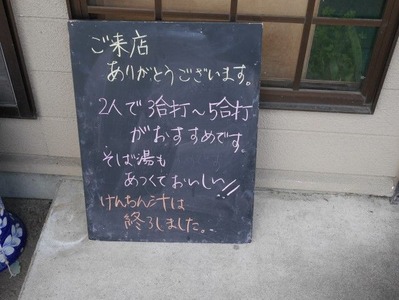 ご来店
ありがとうございます。
2人で3合打～5合打
がおすすめです。
そば湯も
あつくておいしい!!
けんちん汁は
終了しました。